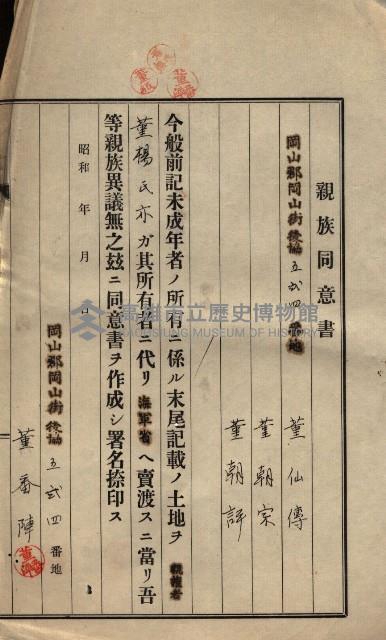 親族同意書
岡山郡岡山街後協五弐四番地
董仙傳
董朝宗
董朝評
今般前記未成年者ノ所有ニ係ル末尾記載ノ土地ヲ親權者
董楊氏亦ガ其所有者ニ代リ海軍省ヘ賣渡スニ當リ吾
等親族異議無之玆ニ同意書ヲ作成シ署名捺印ス
昭和 年 月 日
岡山郡岡山街後協五弐四番地
董番陣
高雄市立歷史博物館
KAOHSIUNG MUSEUM OF HISTORY